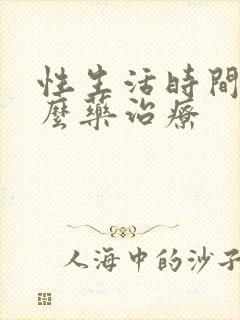 性生活時間
麼藥治療
人海中的沙子